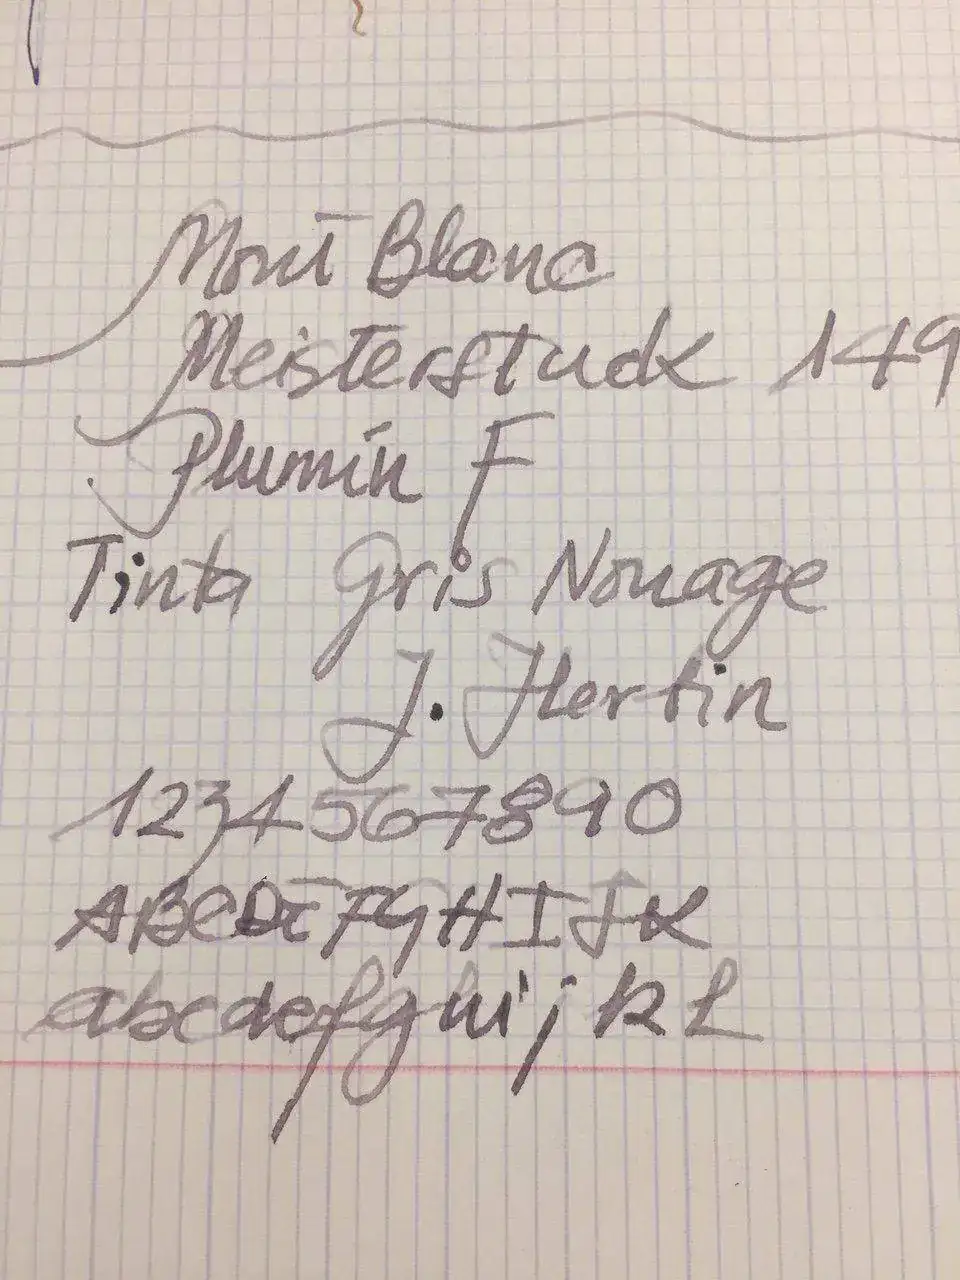 Mont Blanc
Meisterstuck 149
Plumín F
Tinta Gris Nouage
J. Herbin
1234567890
ABCDEFGHIJK
abcdefghijkl